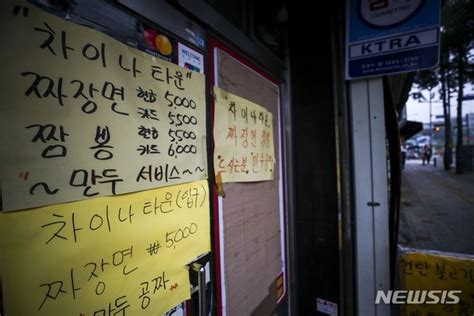 "차이나타운"
짜장면 현금 5,000
카드 5500
짬뽕 현금 5500
카드 6,000
~ 만두 서비스 ~
차이나타운(입구)
짜장면 ₩5,000
만두 공짜
WELCOME
차이나타운
짜장면
만두
KTRA
NEWSIS